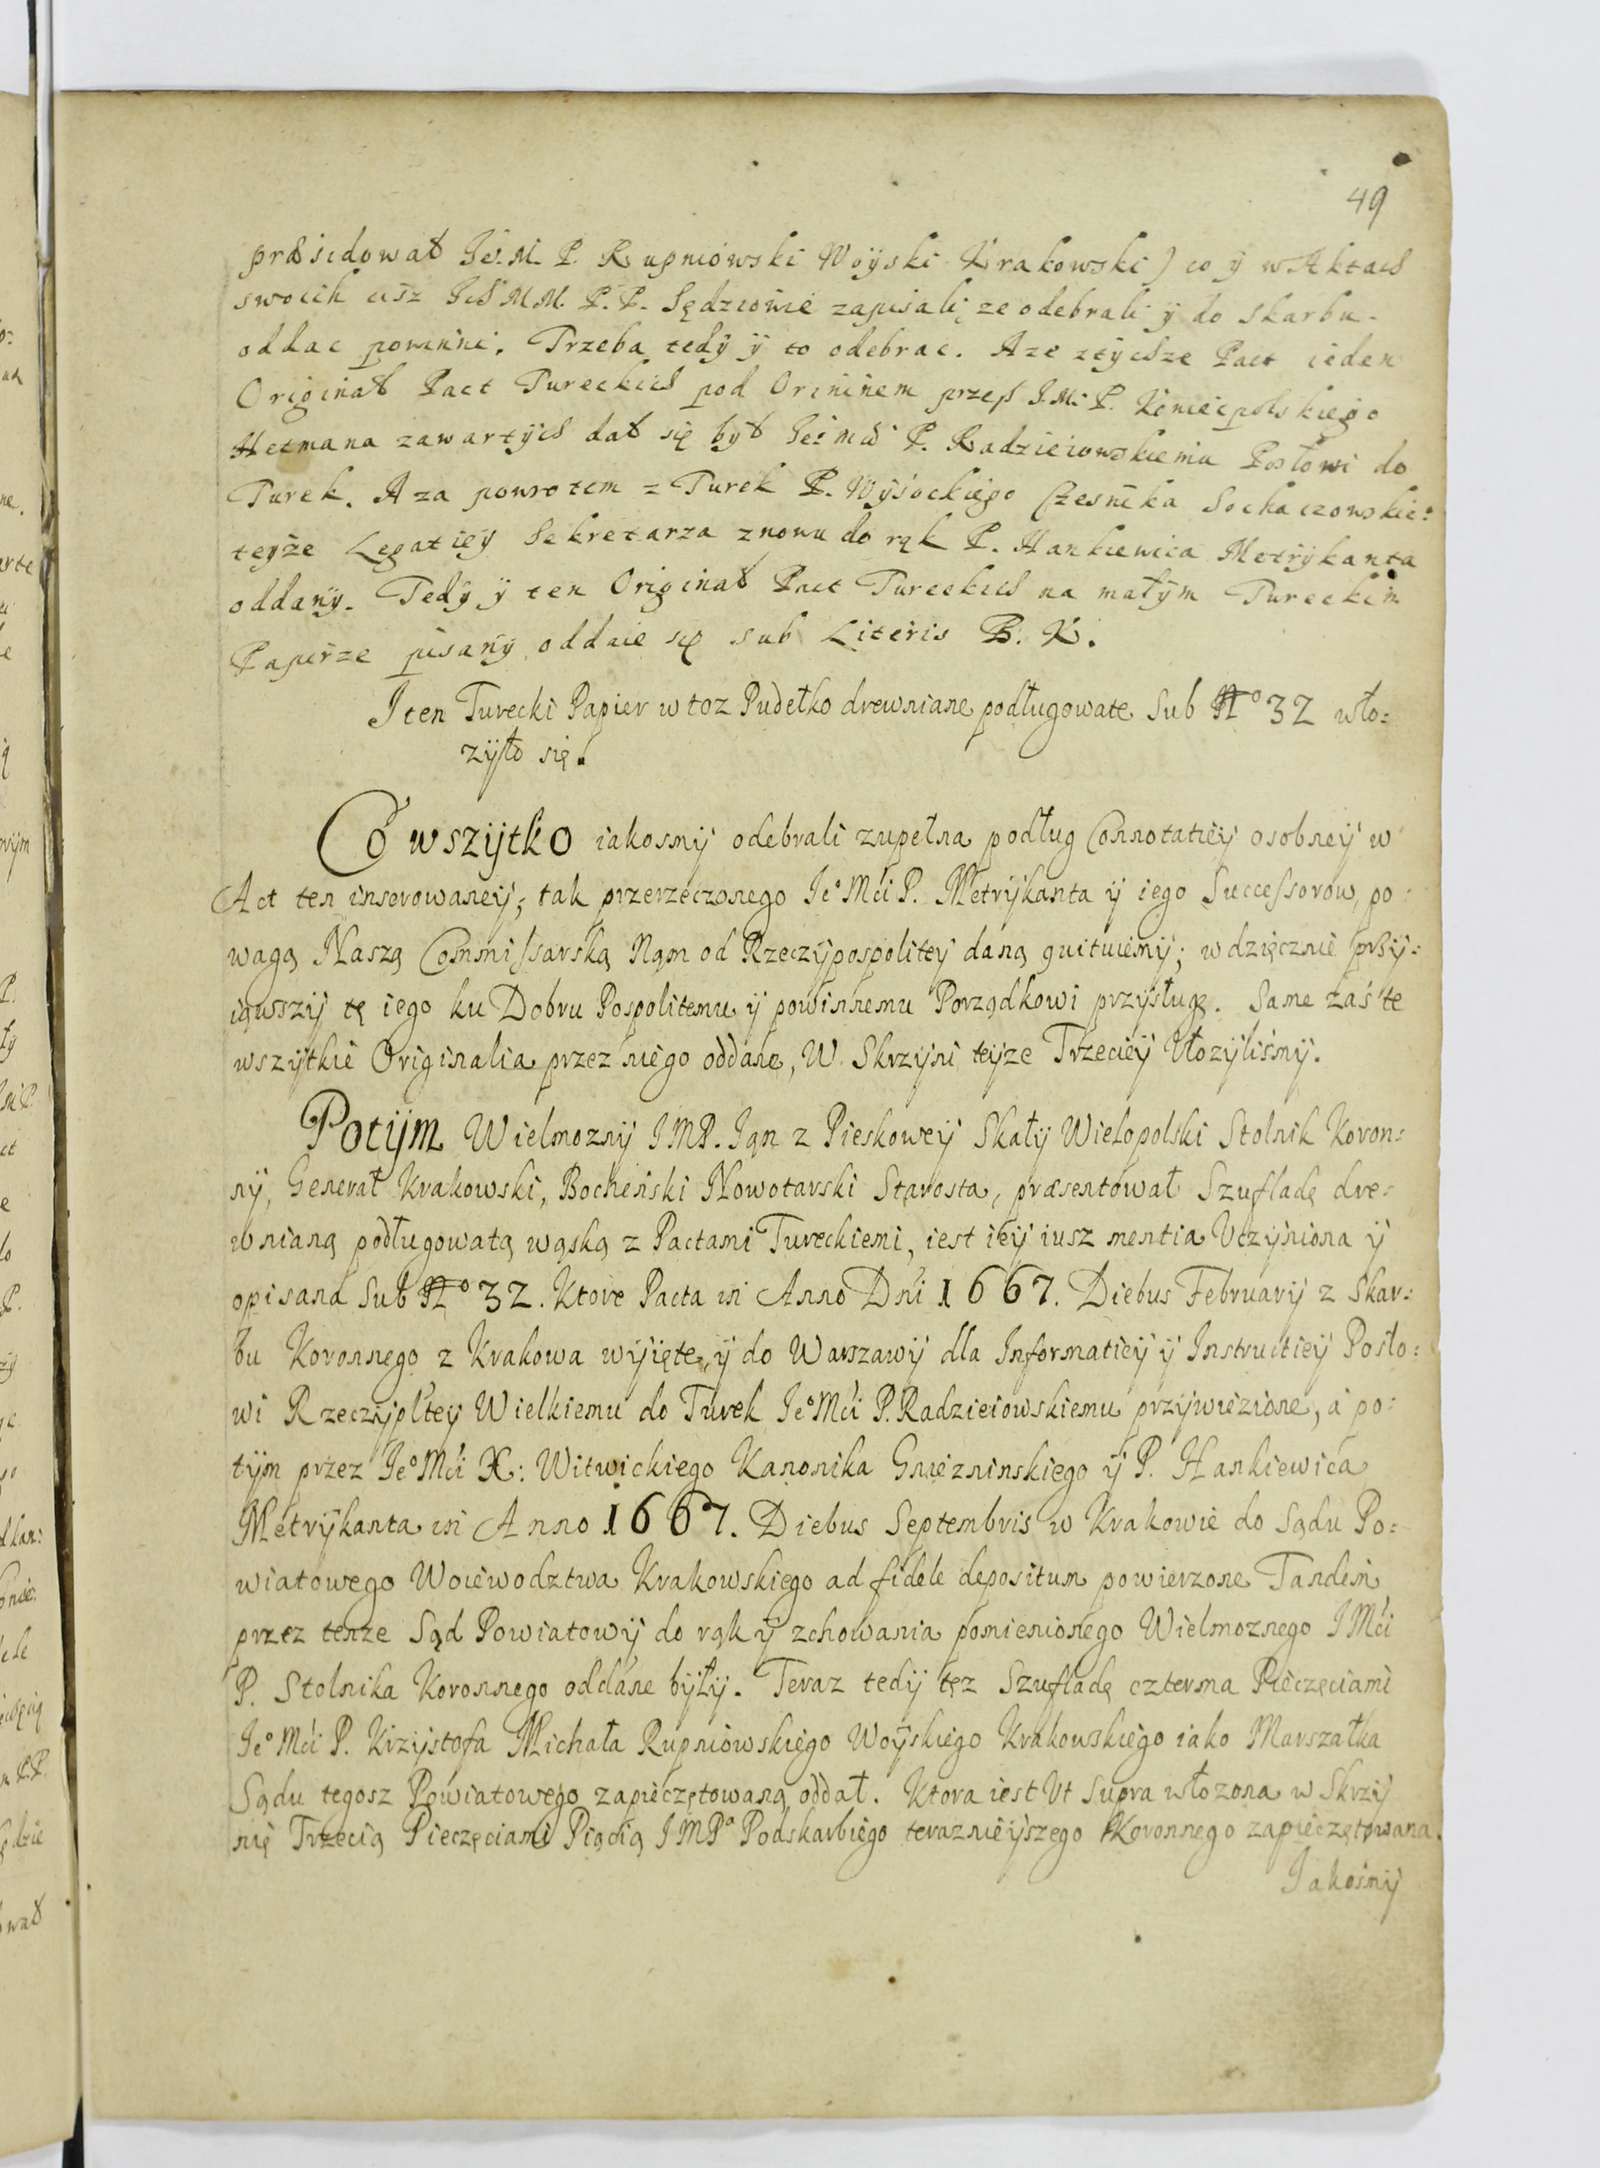 49
præsidował Je. M. P. Rupniowski Woÿski Krakowski) co ÿ w Aktach
swoich iusz Ich MM. P. P. Sędziowie zapisali, ze odebrali ÿ do Skarbu
oddac powinni. Trzeba tedÿ ÿ to odebrac. A ze z tÿchze Pact ieden
Originał Pact Tureckich pod Orininem przeß I. M. P. Koniecpolskiego
Hetmana zawartÿch dał się był Ie mci P. Radzieiowskiemu Posłowi do
Turek. A za powrotem z Turek P. Wÿsockiego Czesnika Sochaczowskie:
teÿze Legatieÿ Sekretarza znowu do rąk P. Hankiewica Metrÿkanta
oddanÿ. Tedÿ ÿ ten Originał Pact Tureckich na małÿm Tureckim
Papirze pisanÿ oddaie się sub Literis B. K.
I ten Turecki Papier w toz Pudełko drewniane podługowate Sub No 32 wło:
zÿło się.
Co wszÿtko iakosmÿ odebrali zupełna podług Connotatieÿ osobneÿ w
Act ten inserowaneÿ; tak przerzeczonego Ieo Mći P. Metrÿkanta ÿ iego Successorow, po:
wagą Naszą Commissarską Nąm od Rzeczÿpospoliteÿ daną quituiemÿ; wdzięcznie przÿ:
iąwszÿ tę iego ku Dobru Pospolitemu ÿ powinnemu Porządkowi przÿsługę. Same zaś te
wszÿtkie Originalia przez niego oddane, W Skrzÿni teÿze Trzecieÿ Vłozÿlismÿ.
Potÿm Wielmoznÿ I M P. Ian z Pieskoweÿ Skałÿ Wielopolski Stolnik Koron:
nÿ, Generał Krakowski, Bocheński Nowotarski Starosta, præsentował Szufladę dre:
wnianą podługowatą wąską z Pactami Tureckiemi, iest ieÿ iusz mentia Vczÿniona ÿ
opisana Sub No 32. Ktore Pacta in Anno Dni 1667. Diebus Februarÿ z Skar:
bu Koronnego z Krakowa wÿięte, ÿ do Warszawÿ dla Informatieÿ ÿ Instructieÿ Posło:
wi Rzeczÿpltey Wielkiemu do Turek Ieo Mći P. Radzieiowskiemu przÿwiezione, á po:
tÿm przez Ieo Mći X: Witwickiego Kanonika Gniezninskiego ÿ P. Hankiewica
Metrÿkanta in Anno 1667. Diebus Septembris w Krakowie do Sądu Po:
wiatowego Woiewodztwa Krakowskiego ad fidele depositum powierzone Tandem
przez tenze Sąd Powiatowÿ do rąk ÿ zchowania pomienionego Wielmoznego I Mći
P. Stolnika Koronnego oddane bÿłÿ. Teraz tedÿ tęz Szufladę czterma Pieczęciami
Ieo Mći P. Krzÿstofa Michała Rupniowskiego Woÿskiego Krakowskiego iako Marszałka
Sądu tegosz Powiatowego zapieczętowaną oddał. Ktora iest Vt Supra włozona w Skrzÿ
nię Trzecią Pieczęciami Piącią I M Pa Podskarbiego teraznieÿszego Koronnego zapieczętowana.
Iakosmÿ